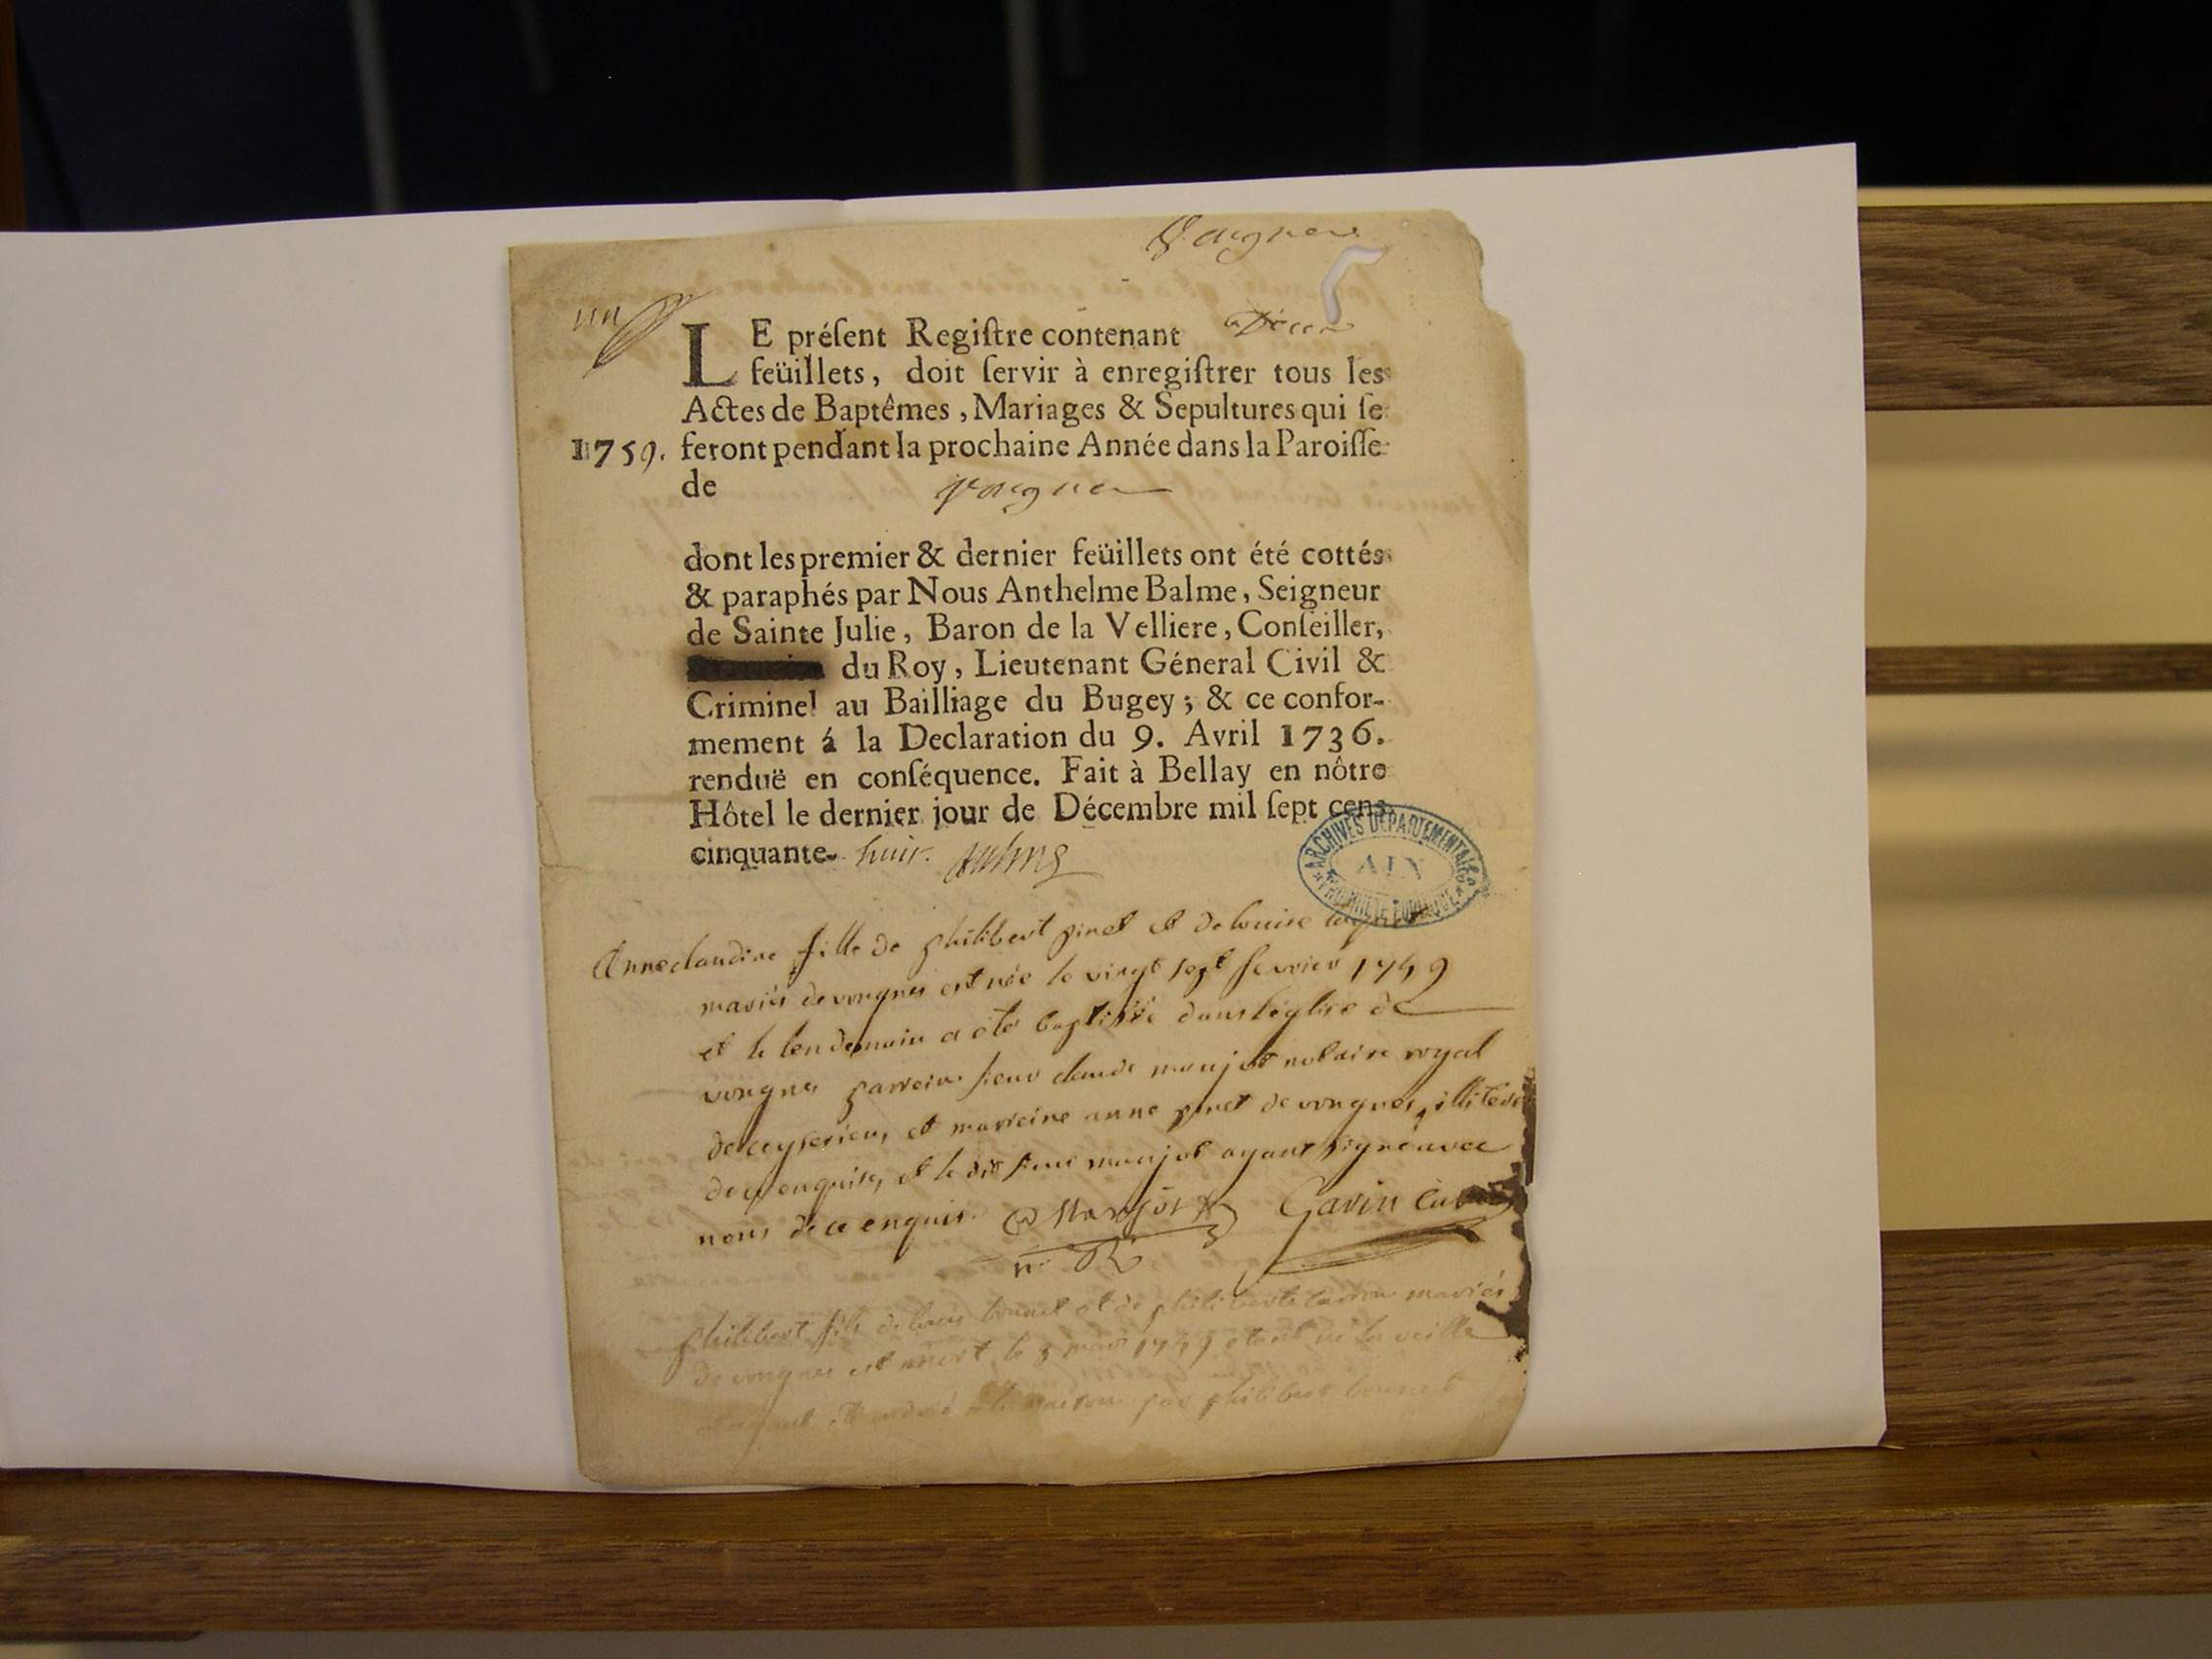 un
LE préſent Regiſtre contenant
feüillets, doit ſervir à enregiſtrer tous les
Actes de Baptêmes, Mariages & Sepultures qui ſe
1759. feront pendant la prochaine Année dans la Paroiſſe
de
dont les premier & dernier feüillets ont été cottés
& paraphés par Nous Anthelme Balme, Seigneur
de Sainte Julie, Baron de la Velliere, Conſeiller,
du Roy, Lieutenant Géneral Civil &
Criminel au Bailliage du Bugey; & ce confor-
mement á la Declaration du 9. Avril 1736.
renduë en conſéquence. Fait à Bellay en nôtre
Hôtel le dernier jour de Décembre mil ſept cens
cinquante- huit. Balme
ARCHIVES DÉPARTEMENTALES
AIN
Anne claudine fille de philibert pinet et de louise
mariés de vongnes est née le vingt sept fevrier 1759
et le lendemain a été baptisée dans l'église de
vongnes parrein sieur claude maujot notaire royal
de ceyserieu, et marreine anne pinet de vongnes, illiterée
de ce enquise, et le dit sieur maujot ayant signé avec
nous de ce enquis. Maujot Gavin curé
philibert fils de bonnet et de philiberte mariés
de vongnes est mort le 3 mars 1759 étant né la veille
ayant été ondoié à la maison par philibert bonnet